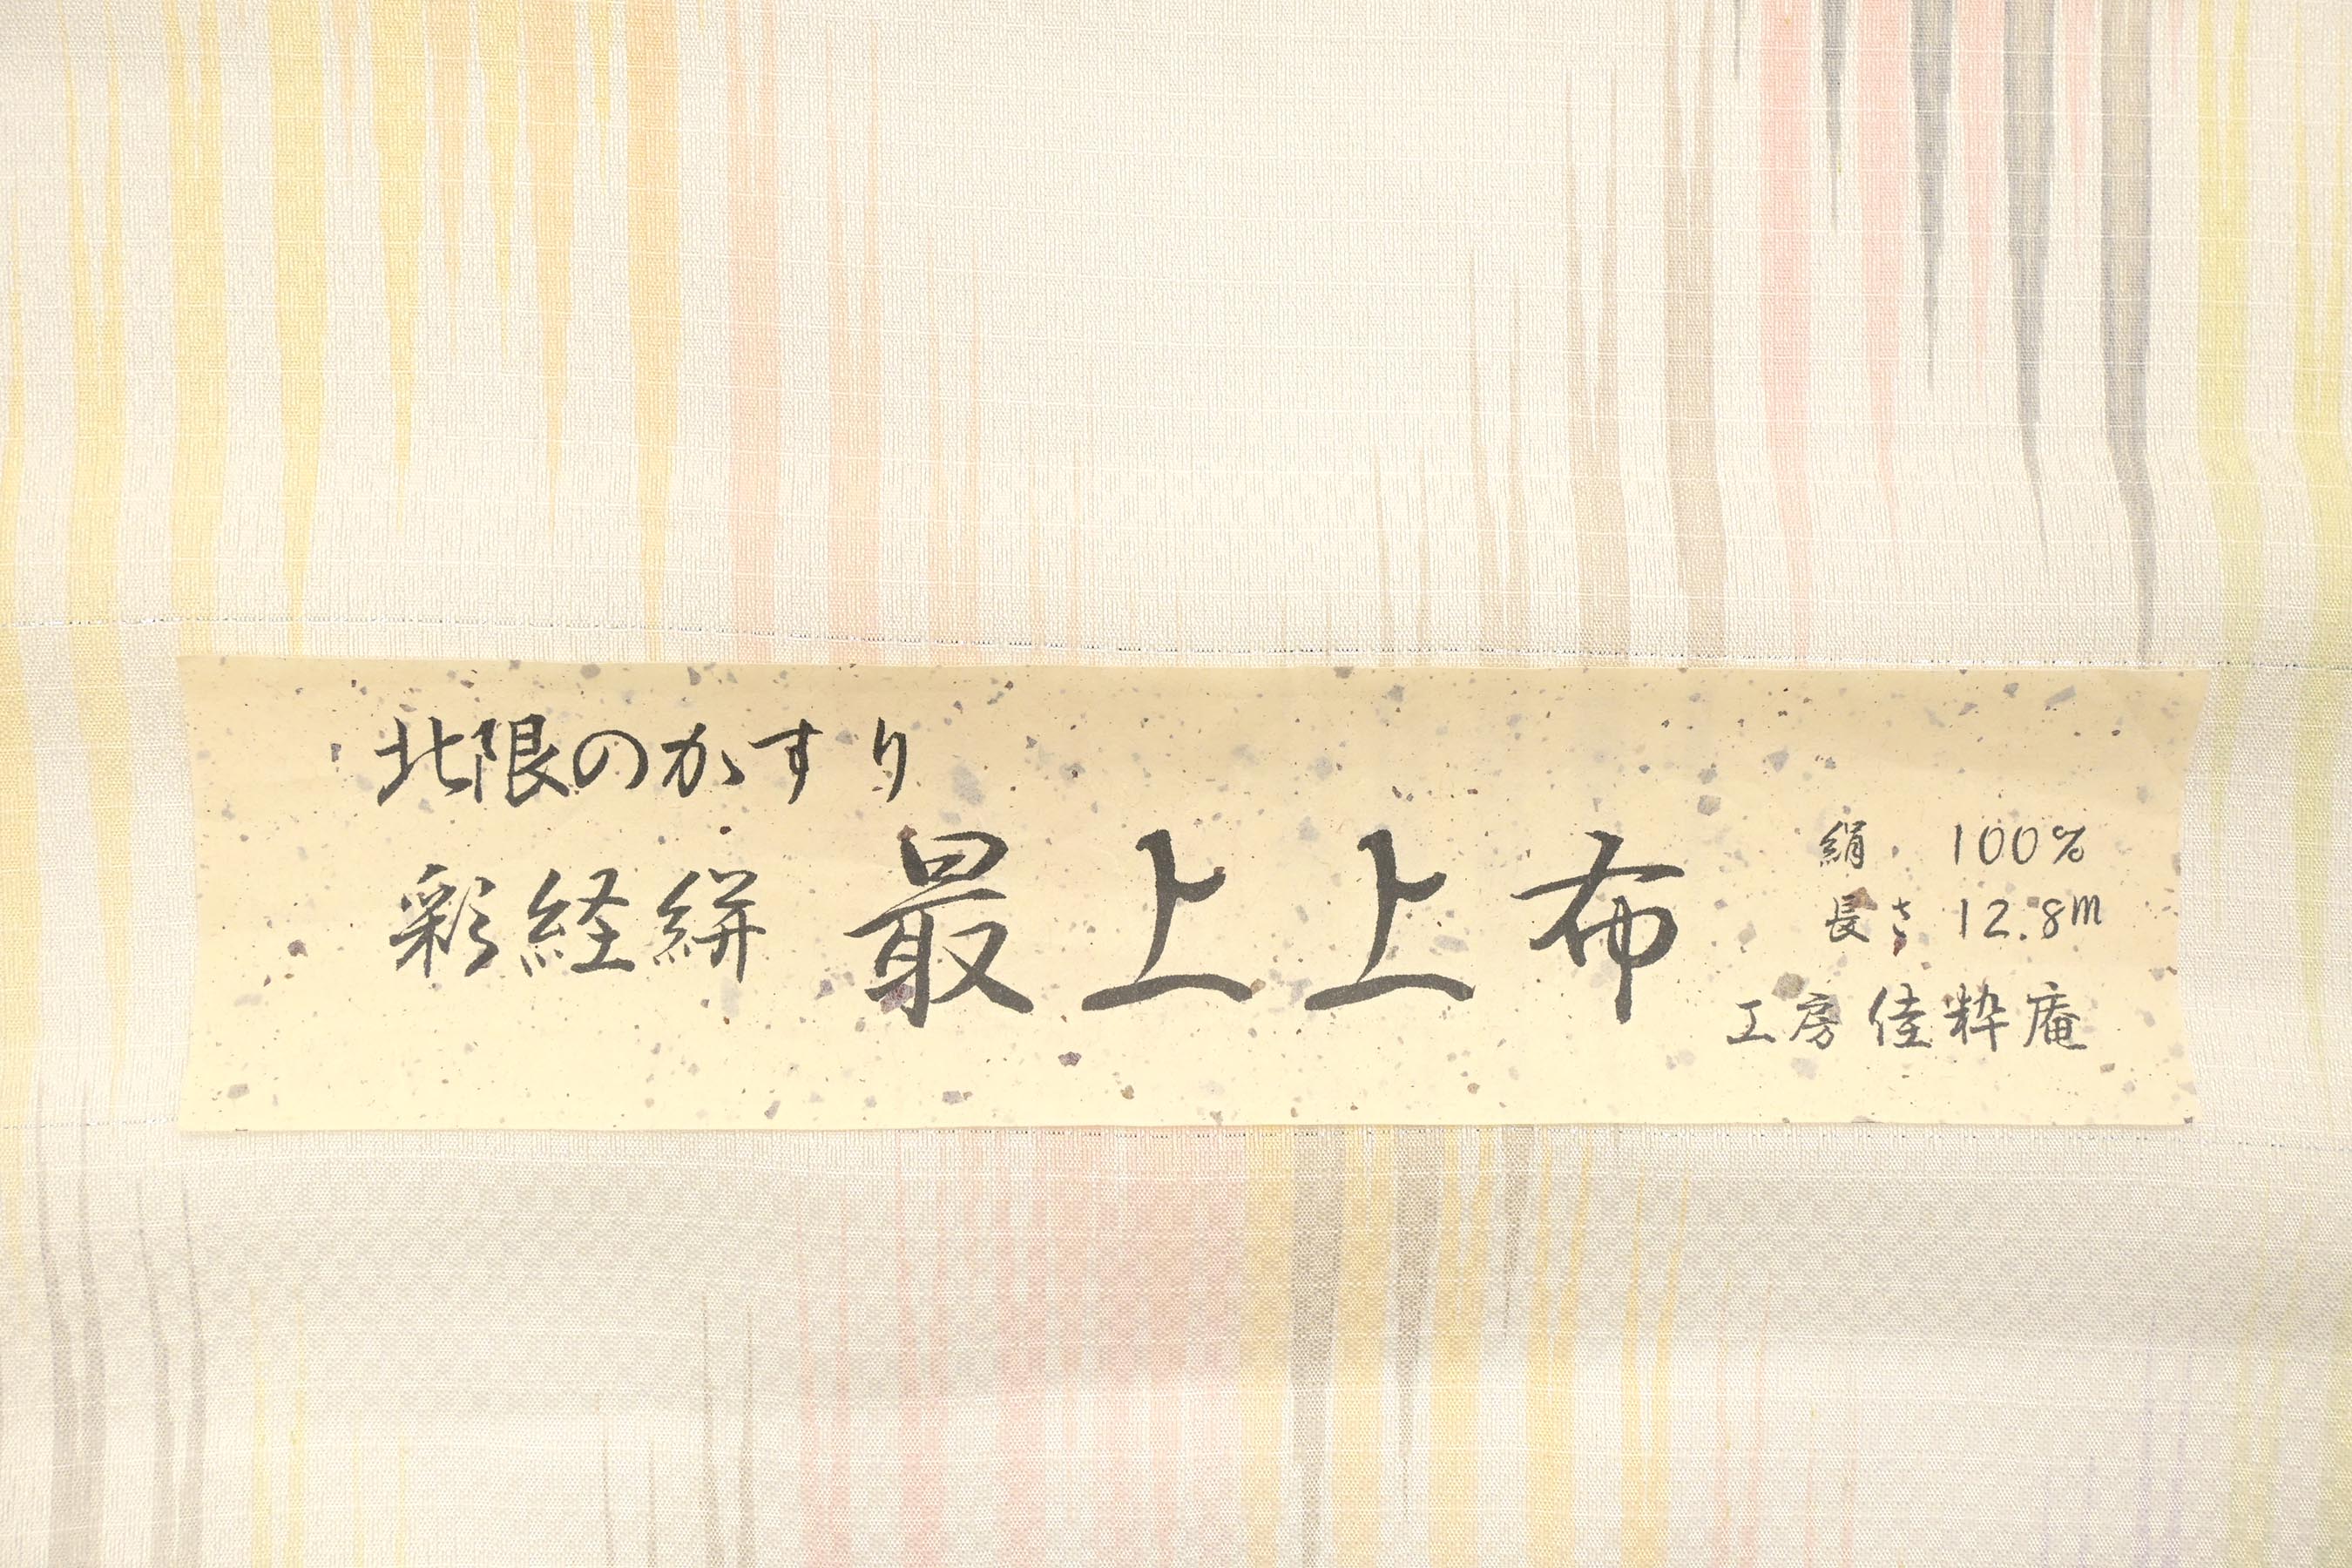 北限のかすり
彩経絣 最上上布
絹 100%
長さ 12.8m
工房 佳粋庵